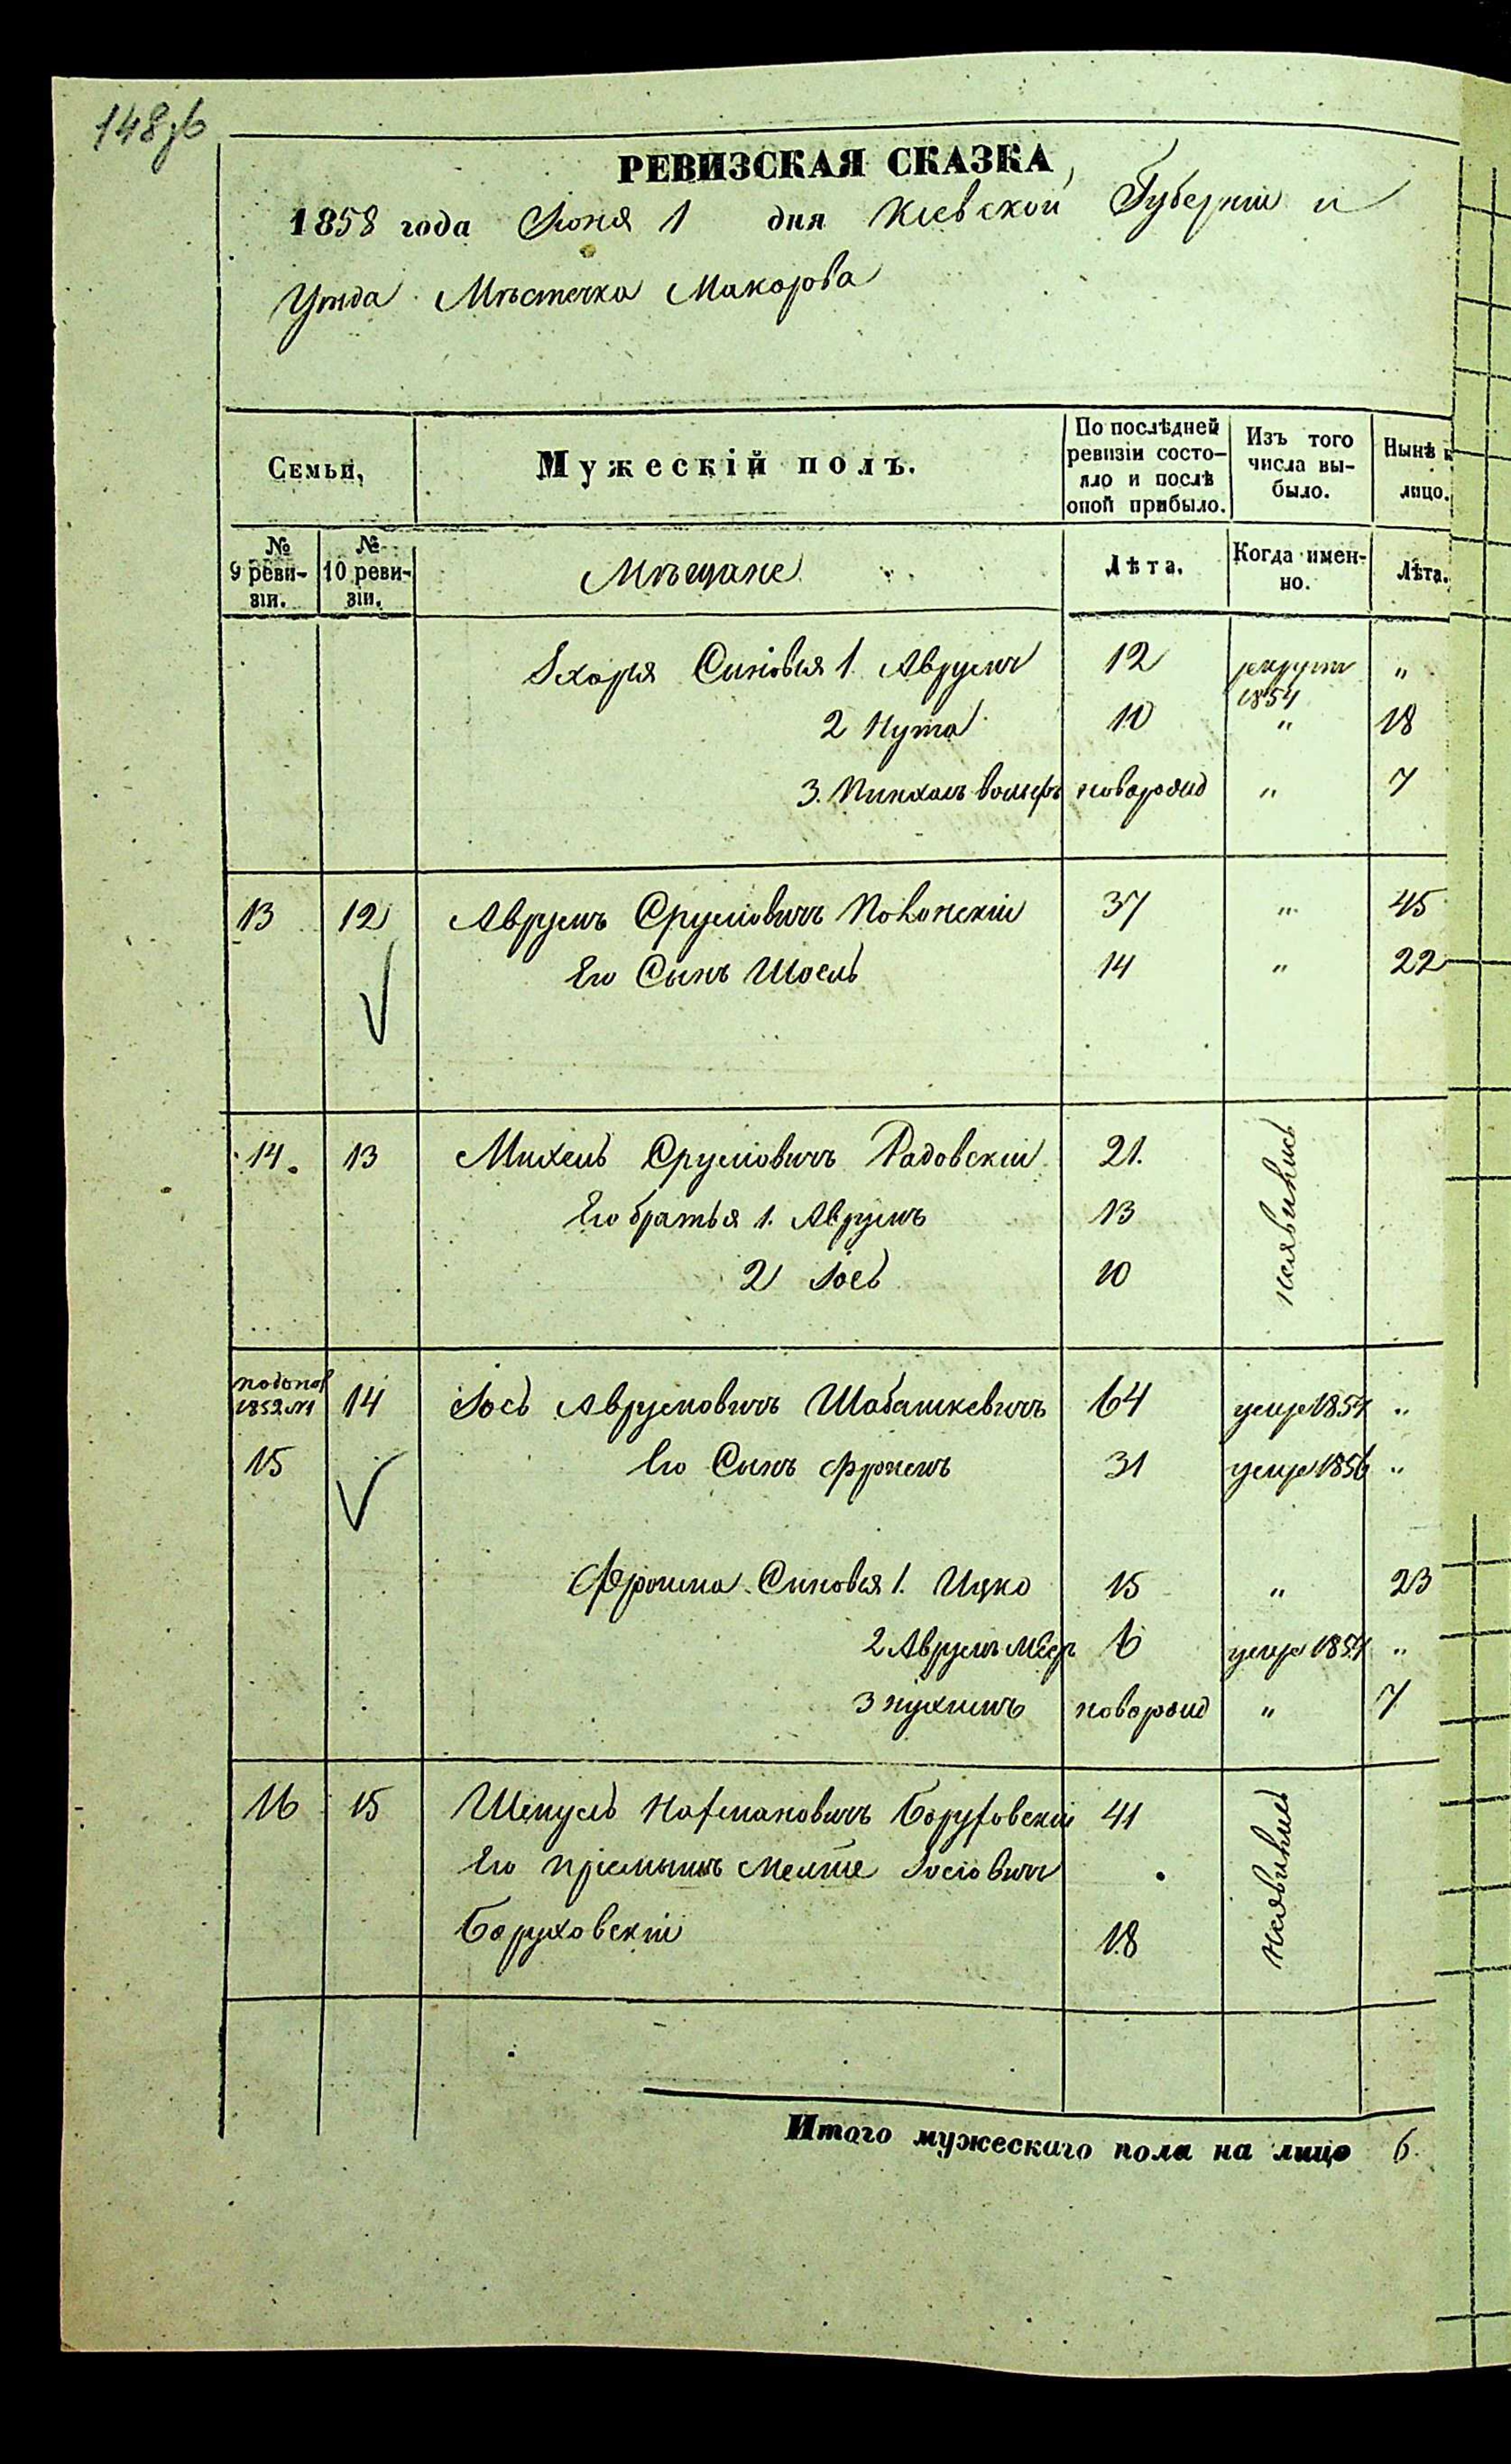 148об
РЕВИЗСКАЯ СКАЗКА
1858 года Июня 1 дня Кіевской Губерніи и
Уѣзда Мѣстечка Макарова
Семьи,
Мужескій полъ.
По послѣдней ревизіи состояло и послѣ оной прибыло.
Изъ того числа выбыло.
Нынѣ н
лицо.
№ 9 ревизіи.
№ 10 ревизіи.
Мѣщане
Лѣта.
Когда именно.
Лѣта.
Синовья 1. Аврумъ 12 рекрутъ 1854 „
2 Нута 10 „ 18
3. Пинхасъ Вольфъ новорожд „ 7
13 12 Аврумъ Сруліовичъ 37 „ 45
Его Сынъ Шоель 14 „ 22
14. 13 Михель Сруліовичъ Радовскій 21. неявивкись
Его братья 1. Аврумъ 13
2 Іось 10
1852 №1 14 Іось Аврумовичъ Шабашкевичъ 64 умер 1857 „
15 Его Сынъ Фроимъ 31 умер 1856 „
Фроима Синовья 1. Ицко 15 „ 23
2 Аврумъ Меер 6 умер 1857 „
3 Нухимъ новорожд „ 7
16 15 Шмуль Нахмановичъ Боруховскій 41 неявивкись
Его пріемышъ Іосіовичъ
Боруховскій 18
Итого мужескаго пола на лицо 6.